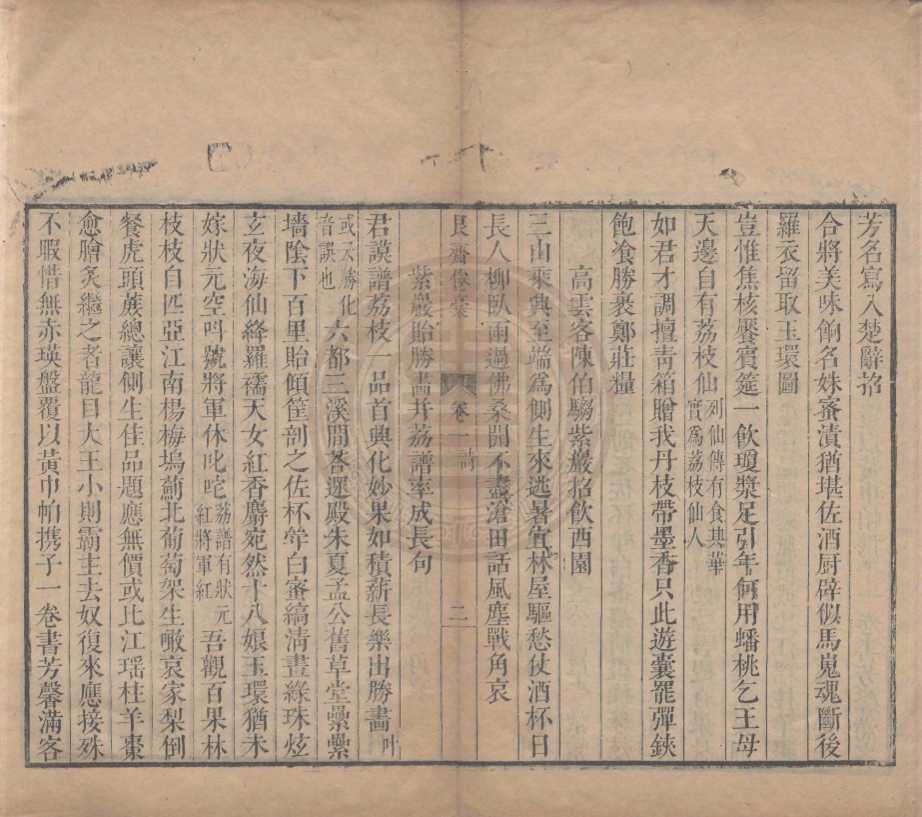 芳名寫入楚辭招
合將美味餉名姝蜜漬猶堪佐酒厨辟似馬嵬魂斷後
羅衣留取玉環圖
豈惟焦核饜賓筵一飲瓊漿足引年何用蟠桃乞王母
天邊自有荔枝仙列仙傳有食其華實爲荔枝仙人
如君才調擅青箱贈我丹枝帶墨香只此遊囊罷彈鋏
飽飡勝裹鄭莊糧
高雲客陳伯騶紫巖招飲西園
三山乘興至端爲側生來逃暑宜林屋驅愁仗酒杯日
長人柳臥雨過佛桑開不盡滄田話風塵戰角哀
艮齋倦稾 卷一詩 二
紫巖貽勝畵幷荔譜率成長句
君謨譜荔枝一品首興化妙果如積薪長樂出勝畵叶
或云勝化音誤也六都三溪間荅遝殿朱夏孟公舊草堂纍纍
墻陰下百里貽傾筐剖之佐杯斝白蜜縞淸晝綠珠炫
玄夜海仙絳羅襦天女紅香麝宛然十八娘玉環猶未
嫁狀元空叫號將軍休叱咤荔譜有狀元紅將軍紅吾觀百果林
枝枝自匹亞江南楊梅塢薊北葡萄架生噉哀家梨倒
餐虎頭蔗總讓側生佳品題應無價或比江瑶柱羊棗
愈膾炙繼之者龍目大王小則霸主去奴復來應接殊
不暇惜無赤瑛盤覆以黃巾帕携子一卷書芳馨滿客